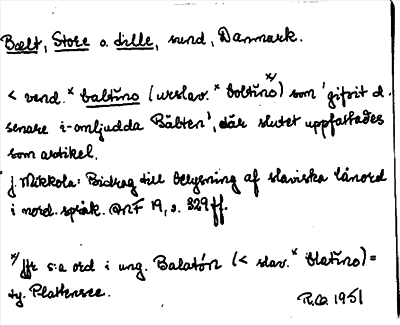 Bælt, Store o. Lille, sund, Danmark.
< vend. * baltĭno (urslav. * boltĭno */) som 'gifvit d.
senare i-omljudda Bälten', där slutet uppfattades
som artikel.
j. Mikkola: Bidrag till belysning af slaviska lånord
i nord. språk. ANF 19, s. 329 ff.
*/ Jfr s:a ord i ung. Balatón (< slav. * blatĭno) =
ty. Plattensee.
1951